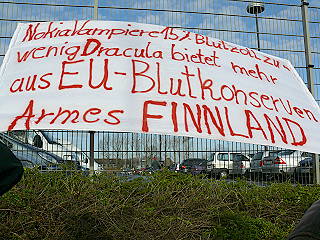 NokiaVampiere 15% Blutzoll zu
wenig Dracula bietet mehr
aus EU-Blutkonserven
Armes FINNLAND